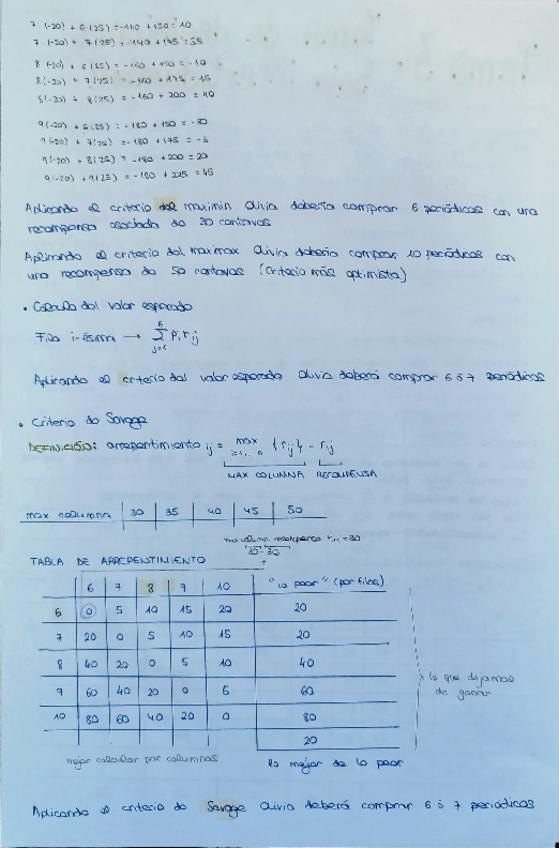 7 (-20) + 6 (25) = -140 + 150 = 10
7 (-20) + 7 (25) = -140 + 175 = 35
8 (-20) + 6 (25) = -160 + 150 = -10
8 (-20) + 7 (25) = -160 + 175 = 15
8 (-20) + 8 (25) = -160 + 200 = 40
9 (-20) + 6 (25) = -180 + 150 = -30
9 (-20) + 7 (25) = -180 + 175 = -5
9 (-20) + 8 (25) = -180 + 200 = 20
9 (-20) + 9 (25) = -180 + 225 = 45
Aplicando el criterio del maximin Olivia debería comprar 6 periódicos con una
recompensa asociada de 30 centavos
Aplicando el criterio del maximax Olivia debería comprar 10 periódicos con
una recompensa de 50 centavos (criterio más optimista)
• Cálculo del valor esperado
Fila i-ésima → Σ Pj rij
Aplicando el criterio del valor esperado Olivia deberá comprar 6 ó 7 periódicos
• Criterio de Savage
DEFINICIÓN: arrepentimiento ij = max i=1,...,n {rij} - rij
MAX COLUMNA RECOMPENSA
max columna | 30 | 35 | 40 | 45 | 50
30 - 30
TABLA DE ARREPENTIMIENTO
6 7 8 9 10 "lo peor" (por filas)
6 0 5 10 15 20 20
7 20 0 5 10 15 20
8 40 20 0 5 10 40
9 60 40 20 0 5 60
10 80 60 40 20 0 80
20
lo que dejamos
de ganar
mejor calcular por columnas
lo mejor de lo peor
Aplicando el criterio de Savage Olivia deberá comprar 6 ó 7 periódicos